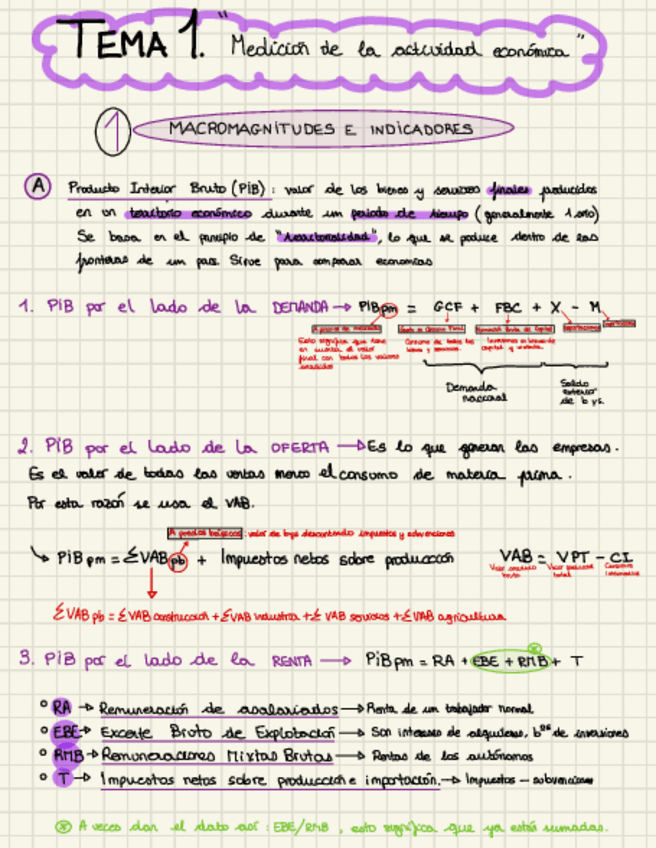 TEMA 1. "Medición de la actividad económica"
1 MACROMAGNITUDES E INDICADORES
A Producto Interior Bruto (PiB): valor de los bienes y servicios finales producidos
en un territorio económico durante un periodo de tiempo (generalmente 1 año)
Se basa en el principio de "territorialidad", lo que se produce dentro de las
fronteras de un país. Sirve para comparar economías
1. PiB por el lado de la DEMANDA → PiBpm = GCF + FBC + X - M
A precios de mercado Gasto en Consumo Final Formación Bruta de Capital Exportaciones Importaciones
Esto significa que tiene
en cuenta el valor
final con todos los valores
Consumo de todos los
bienes y servicios
Inversiones en bienes de
capital y
Demanda
nacional
Saldo
exterior
de b y s.
2. PiB por el lado de la OFERTA → Es lo que generan las empresas.
Es el valor de todas las ventas menos el consumo de materia prima.
Por esta razón se usa el VAB.
A precios básicos: valor de byss descontando impuestos y subvenciones
↳ PiBpm = ΣVABpb + Impuestos netos sobre producción VAB = VPT - CI
Valor añadido
bruto
Valor producción
total
Consumos
intermedios
ΣVABpb = ΣVAB construcción + ΣVAB industria + Σ VAB servicios + ΣVAB agricultura
3. PiB por el lado de la RENTA → PiBpm = RA + EBE + RMB + T
° RA → Remuneración de asalariados → Renta de un trabajador normal
° EBE → Excente Bruto de Explotación → Son intereses de alquileres, bºs de inversiones
° RMB → Remuneraciones Mixtas Brutas → Rentas de los autónomos
° T → Impuestos netos sobre producción e importación. → Impuestos - subvenciones
⊛ A veces dan el dato así: EBE/RMB, esto significa que ya están sumadas.